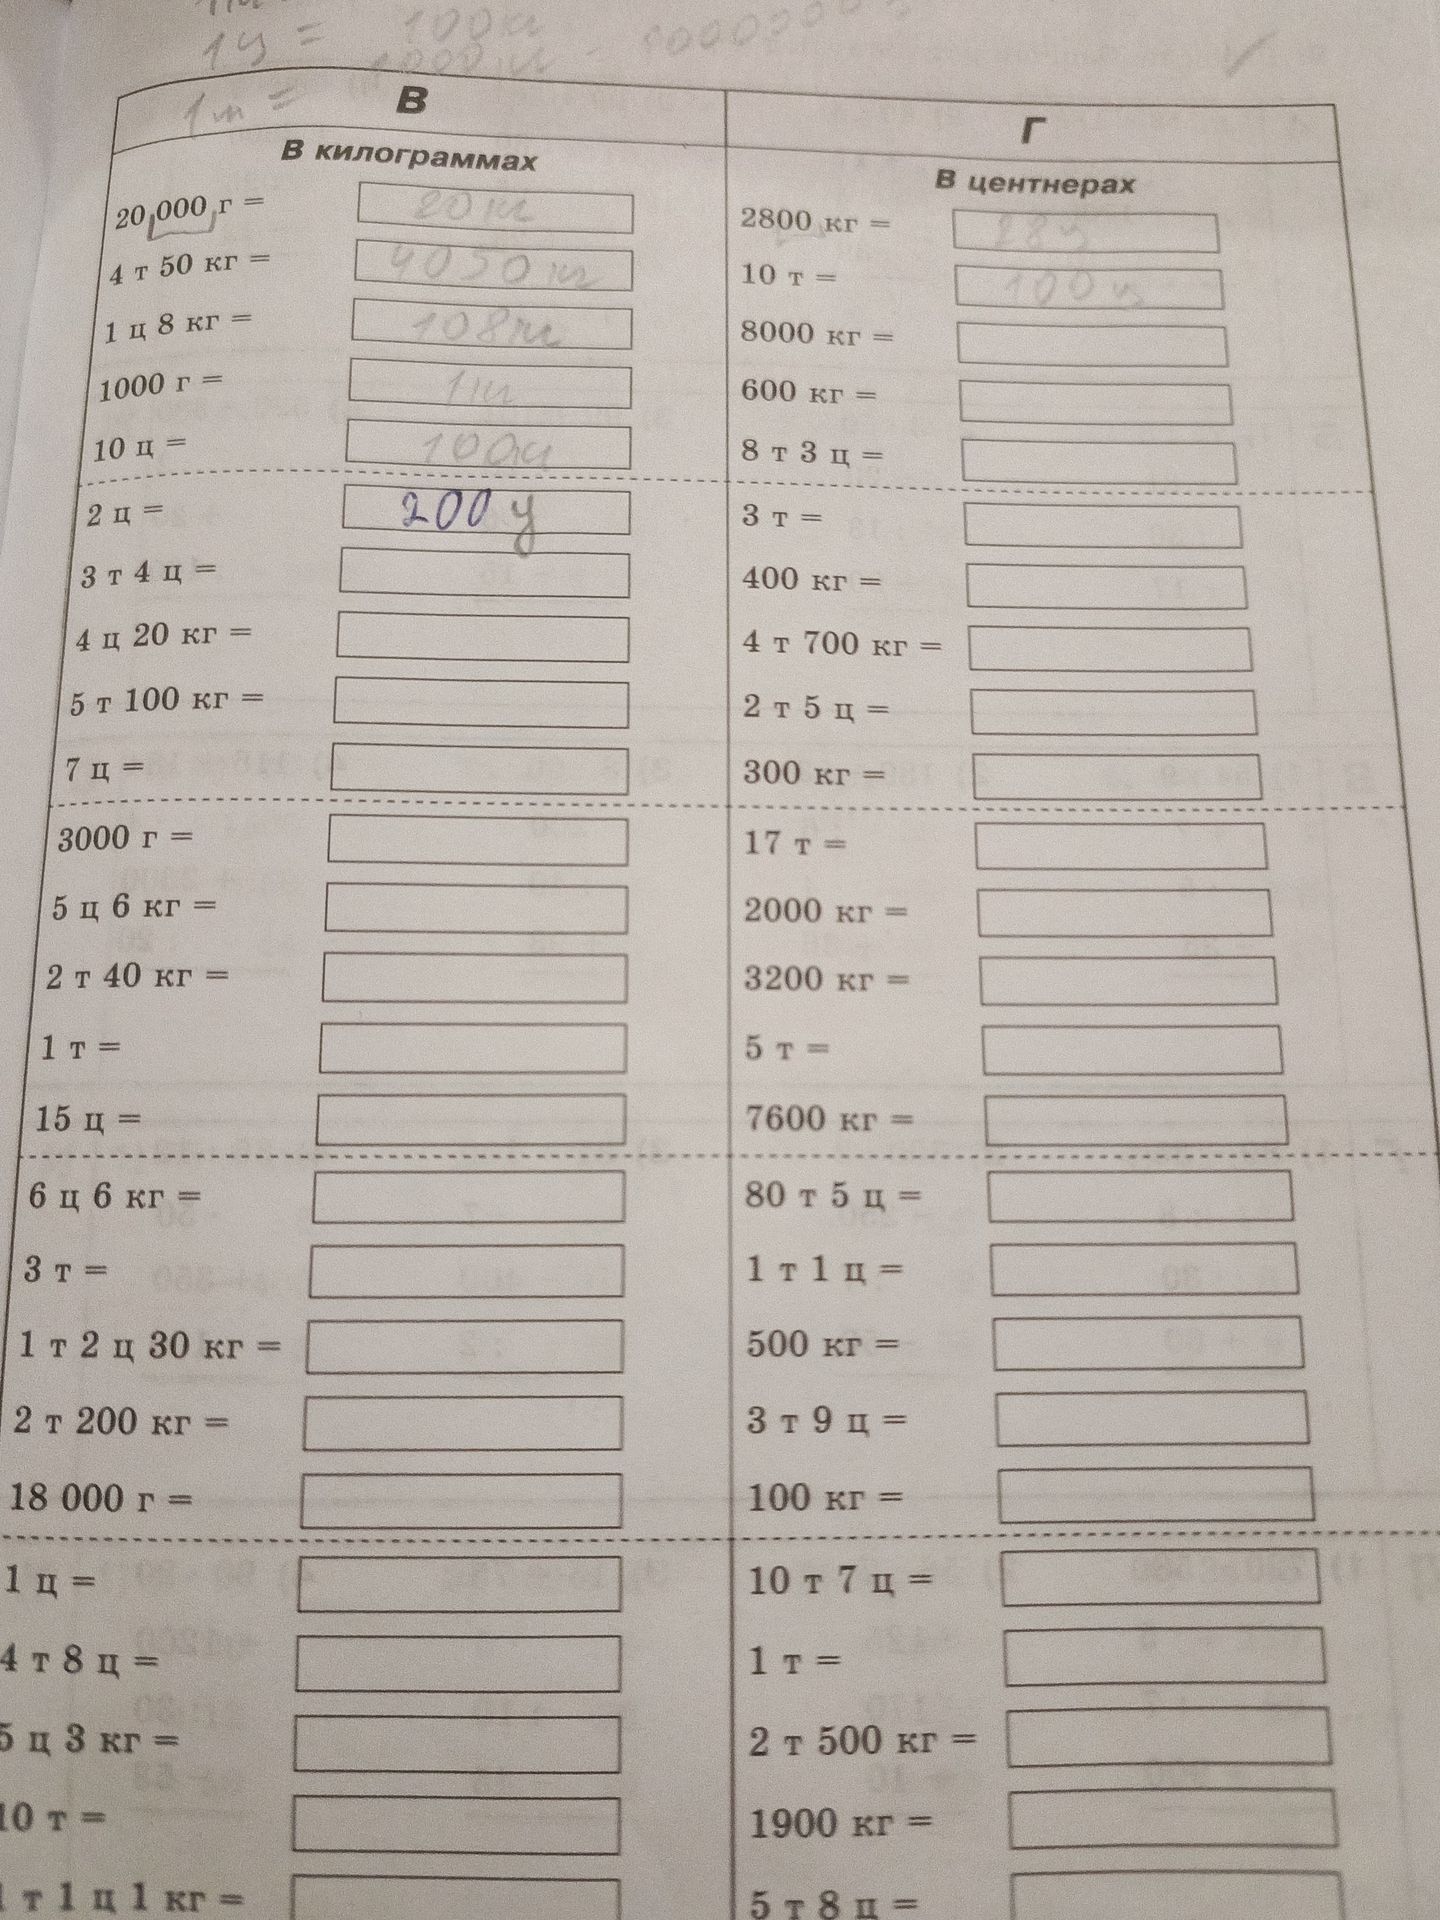 1ц = 100кг
1т = 1000кг
В
В килограммах
20 000 г = 20 кг
4 т 50 кг = 4050 кг
1 ц 8 кг = 108кг
1000 г = 1кг
10 ц =
2 ц = 200 ц
3 т 4 ц =
4 ц 20 кг =
5 т 100 кг =
7 ц =
3000 г =
5 ц 6 кг =
2 т 40 кг =
1 т =
15 ц =
6 ц 6 кг =
3 т =
1 т 2 ц 30 кг =
2 т 200 кг =
18 000 г =
1 ц =
4 т 8 ц =
5 ц 3 кг =
10 т =
1 т 1 ц 1 кг =
Г
В центнерах
2800 кг = 28ц
10 т = 100 ц
8000 кг =
600 кг =
8 т 3 ц =
3 т =
400 кг =
4 т 700 кг =
2 т 5 ц =
300 кг =
17 т =
2000 кг =
3200 кг =
5 т =
7600 кг =
80 т 5 ц =
1 т 1 ц =
500 кг =
3 т 9 ц =
100 кг =
10 т 7 ц =
1 т =
2 т 500 кг =
1900 кг =
5 т 8 ц =